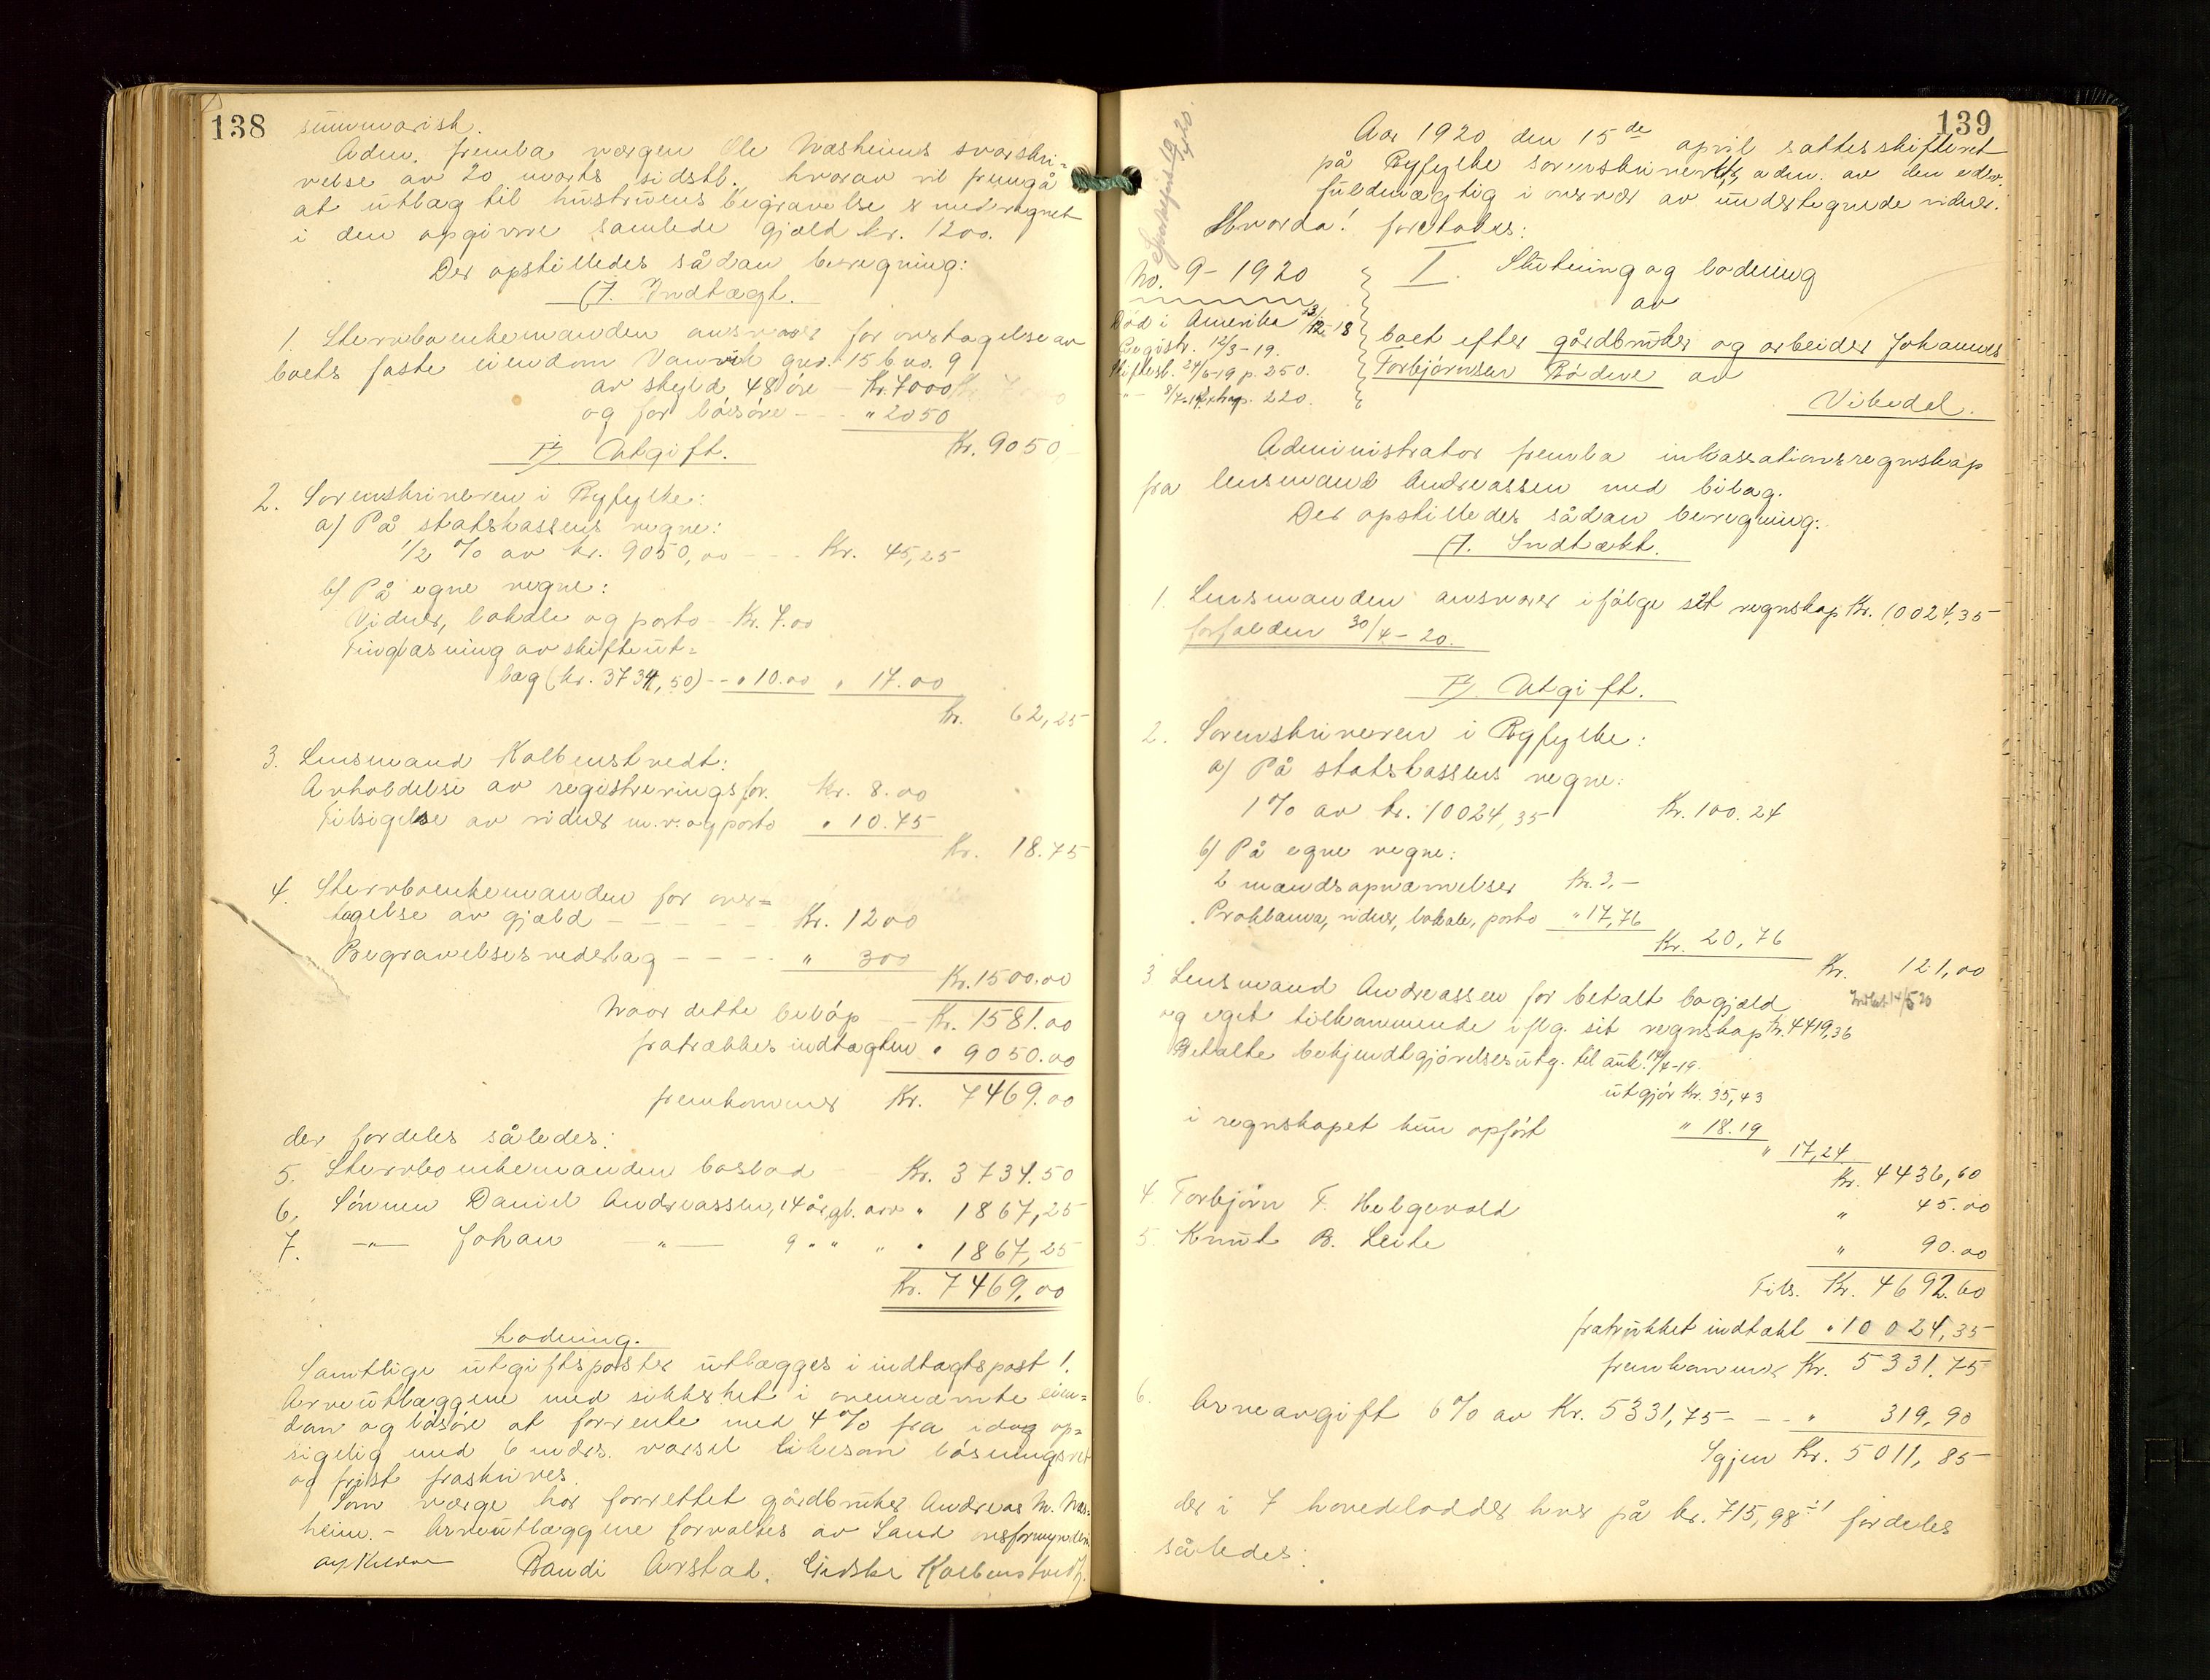 138
summarisk.
Adm. fremla vergen Ole Næsheims svarskri=
velse av 20 marts sidstl. hvorav vil fremgå
at utlæg til hustruens begravelse er medregnet
i den opgivne samlede gjæld kr. 1200.
Der opstilledes sådan beregning:
A. Indtægt.
1. Stervboenkemanden ansvarer for overtagelse av
boets faste eiendom Vanvik gnr. 15 b no. 9
av skyld 48 øre - Kr. 7000
og for løsøre - - " 2050
Kr. 9050
B. Utgift.
2. Sorenskriveren i Ryfylke:
a) På statskassens vegne:
1/2 % av kr. 9050,00 - - - Kr. 45,25
b) På egne vegne:
Vidner, lokale og porto - Kr. 7.00
Tinglæsning av skifteut=
læg (kr. 3734,50) - - " 10.00 " 17.00
Kr. 62,25
3. Lensmand Kolbenstvedt:
Avholdelse av registreringsfor. Kr. 8.00
Tilsigelse av vidner m.v. og porto " 10.75
Kr. 18.75
4. Stervboenkemanden for over=
tagelse av gjæld - - - - - Kr. 1200
Begravelsesvederlag - - - - " 300
Kr. 1500.00
Naar dette beløp - Kr. 1581.00
fratrækkes indtægten " 9050.00
fremkommer Kr. 7469.00
der fordeles således:
5. Stervboenkemanden boslod Kr. 3734.50
6. Sønnen Daniel Andreassen, 14 år gl. arv " 1867,25
7. -"- Johan -"- 9 " " " " 1867,25
Kr. 7469,00
Lodning.
Samtlige utgiftsposter utlægges i indtægtspost 1.
Arveutlæggene med sikkerhet i ovennævnte eien=
dom og løsøre at forrente med 4 % fra idag op=
sigelig med 6 mdrs. varsel likesom løsningsret
og frist fraskrives.
Som verge har forrettet gårdbruker Andreas N. Næs=
heim. - Arveutlæggene forvaltes av Sand overformynderi
Bandi Arstad. Gidske Kolbenstvedt.
139
Aar 1920 den 15de april sattes skifteret
på Ryfylke sorenskriverk. adm. av den edsv.
fuldmægtig i overvær av undertegnede vidner.
Hvorda! foretokes:
No. 9 - 1920
Død i Amerika 13/12-18
Registr. 12/3-19.
Skiftesl. 24/6-19 p. 250.
-"- 8/7-19 p. 220.
I. Slutning og lodning
av
boet efter gårdbruker og arbeider Johannes
Torbjørnsen Bødve av
Vikedal.
Administrator fremla inkassationsregnskap
fra lensmand Andreassen med bilag.
Der opstilledes sådan beregning:
A. Indtækt.
1. Lensmanden ansvarer ifølge sit regnskap Kr. 10024,35
forfalden 30/4-20.
B. Utgift.
2. Sorenskriveren i Ryfylke:
a) På statskassens vegne:
1 % av kr. 10024,35 Kr. 100.24
b) På egne vegne:
2 mandsopnævnelser Kr. 3,-
Proklama, vidner, lokale, porto " 17,76
Kr. 20,76
Kr. 121,00
3 Lensmand Andreassen for betalt bogjæld
og eget tilkommende iflg. sit regnskap Kr. 4419,36
Betalte bekjendtgjørelsesutg. til auk. 14/4-19.
utgjør Kr. 35,43
i regnskapet kun opført " 18.19
" 17,24
Kr. 4436,60
4. Torbjørn T. Helgevold " 45.00
5. Knut B. Leite " 90.00
Tils. Kr. 4692.60
fratrukket indtækt " 10024,35
fremkommer Kr. 5331.75
6. Arveavgift 6 % av Kr. 5331,75 - - - " 319,90
Igjen Kr. 5011,85
der i 7 hovedlodder hver på kr. 715,98 fordeles
således: